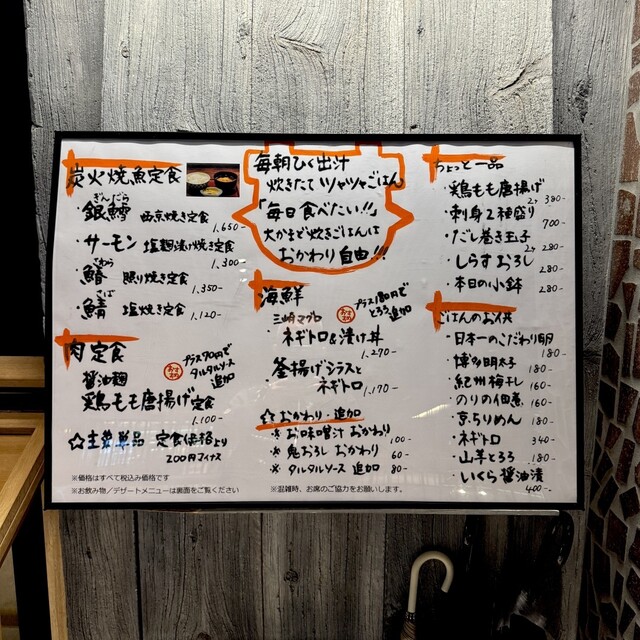 炭火焼魚定食
ぎんだら
銀鱈 西京焼き定食
1,650-
・サーモン 塩麹漬け焼き定食
1,300-
さわら
・鰆 照り焼き定食
1,350-
さば
・鯖 塩焼き定食
1,120-
肉定食
おすすめ
プラス70円で
タルタルソース
追加
醤油麹
鶏もも唐揚げ定食
1,100-
☆主菜単品 定食価格より
200円マイナス
※価格はすべて税込み価格です
※お飲み物/デザートメニューは裏面をご覧ください
毎朝ひく出汁
炊きたてツヤツヤごはん
「毎日食べたい!!」
大かまど炊きごはんは
おかわり自由!!!
海鮮
おすすめ
プラス180円で
とろろ追加
三崎マグロ
ネギトロ&漬け丼
1,270-
・釜揚げシラスと
ネギトロ 1,170-
☆おかわり・追加
※お味噌汁 おかわり
100-
※鬼おろし おかわり 60-
※タルタルソース 追加 80-
※混雑時、お席のご協力をお願いします。
ちょっと一品
・鶏もも唐揚げ
2ヶ 380-
・刺身2種盛り
700-
・だし巻き玉子
2ヶ 280-
・しらすおろし
280-
・本日の小鉢
280-
ごはんのお供
・日本一のこだわり卵
180-
・博多明太子 180-
・紀州梅干し 160-
・のりの佃煮 160-
・京ちりめん 180-
・ネギトロ 340-
・山芋とろろ 180-
・いくら醤油漬
400-